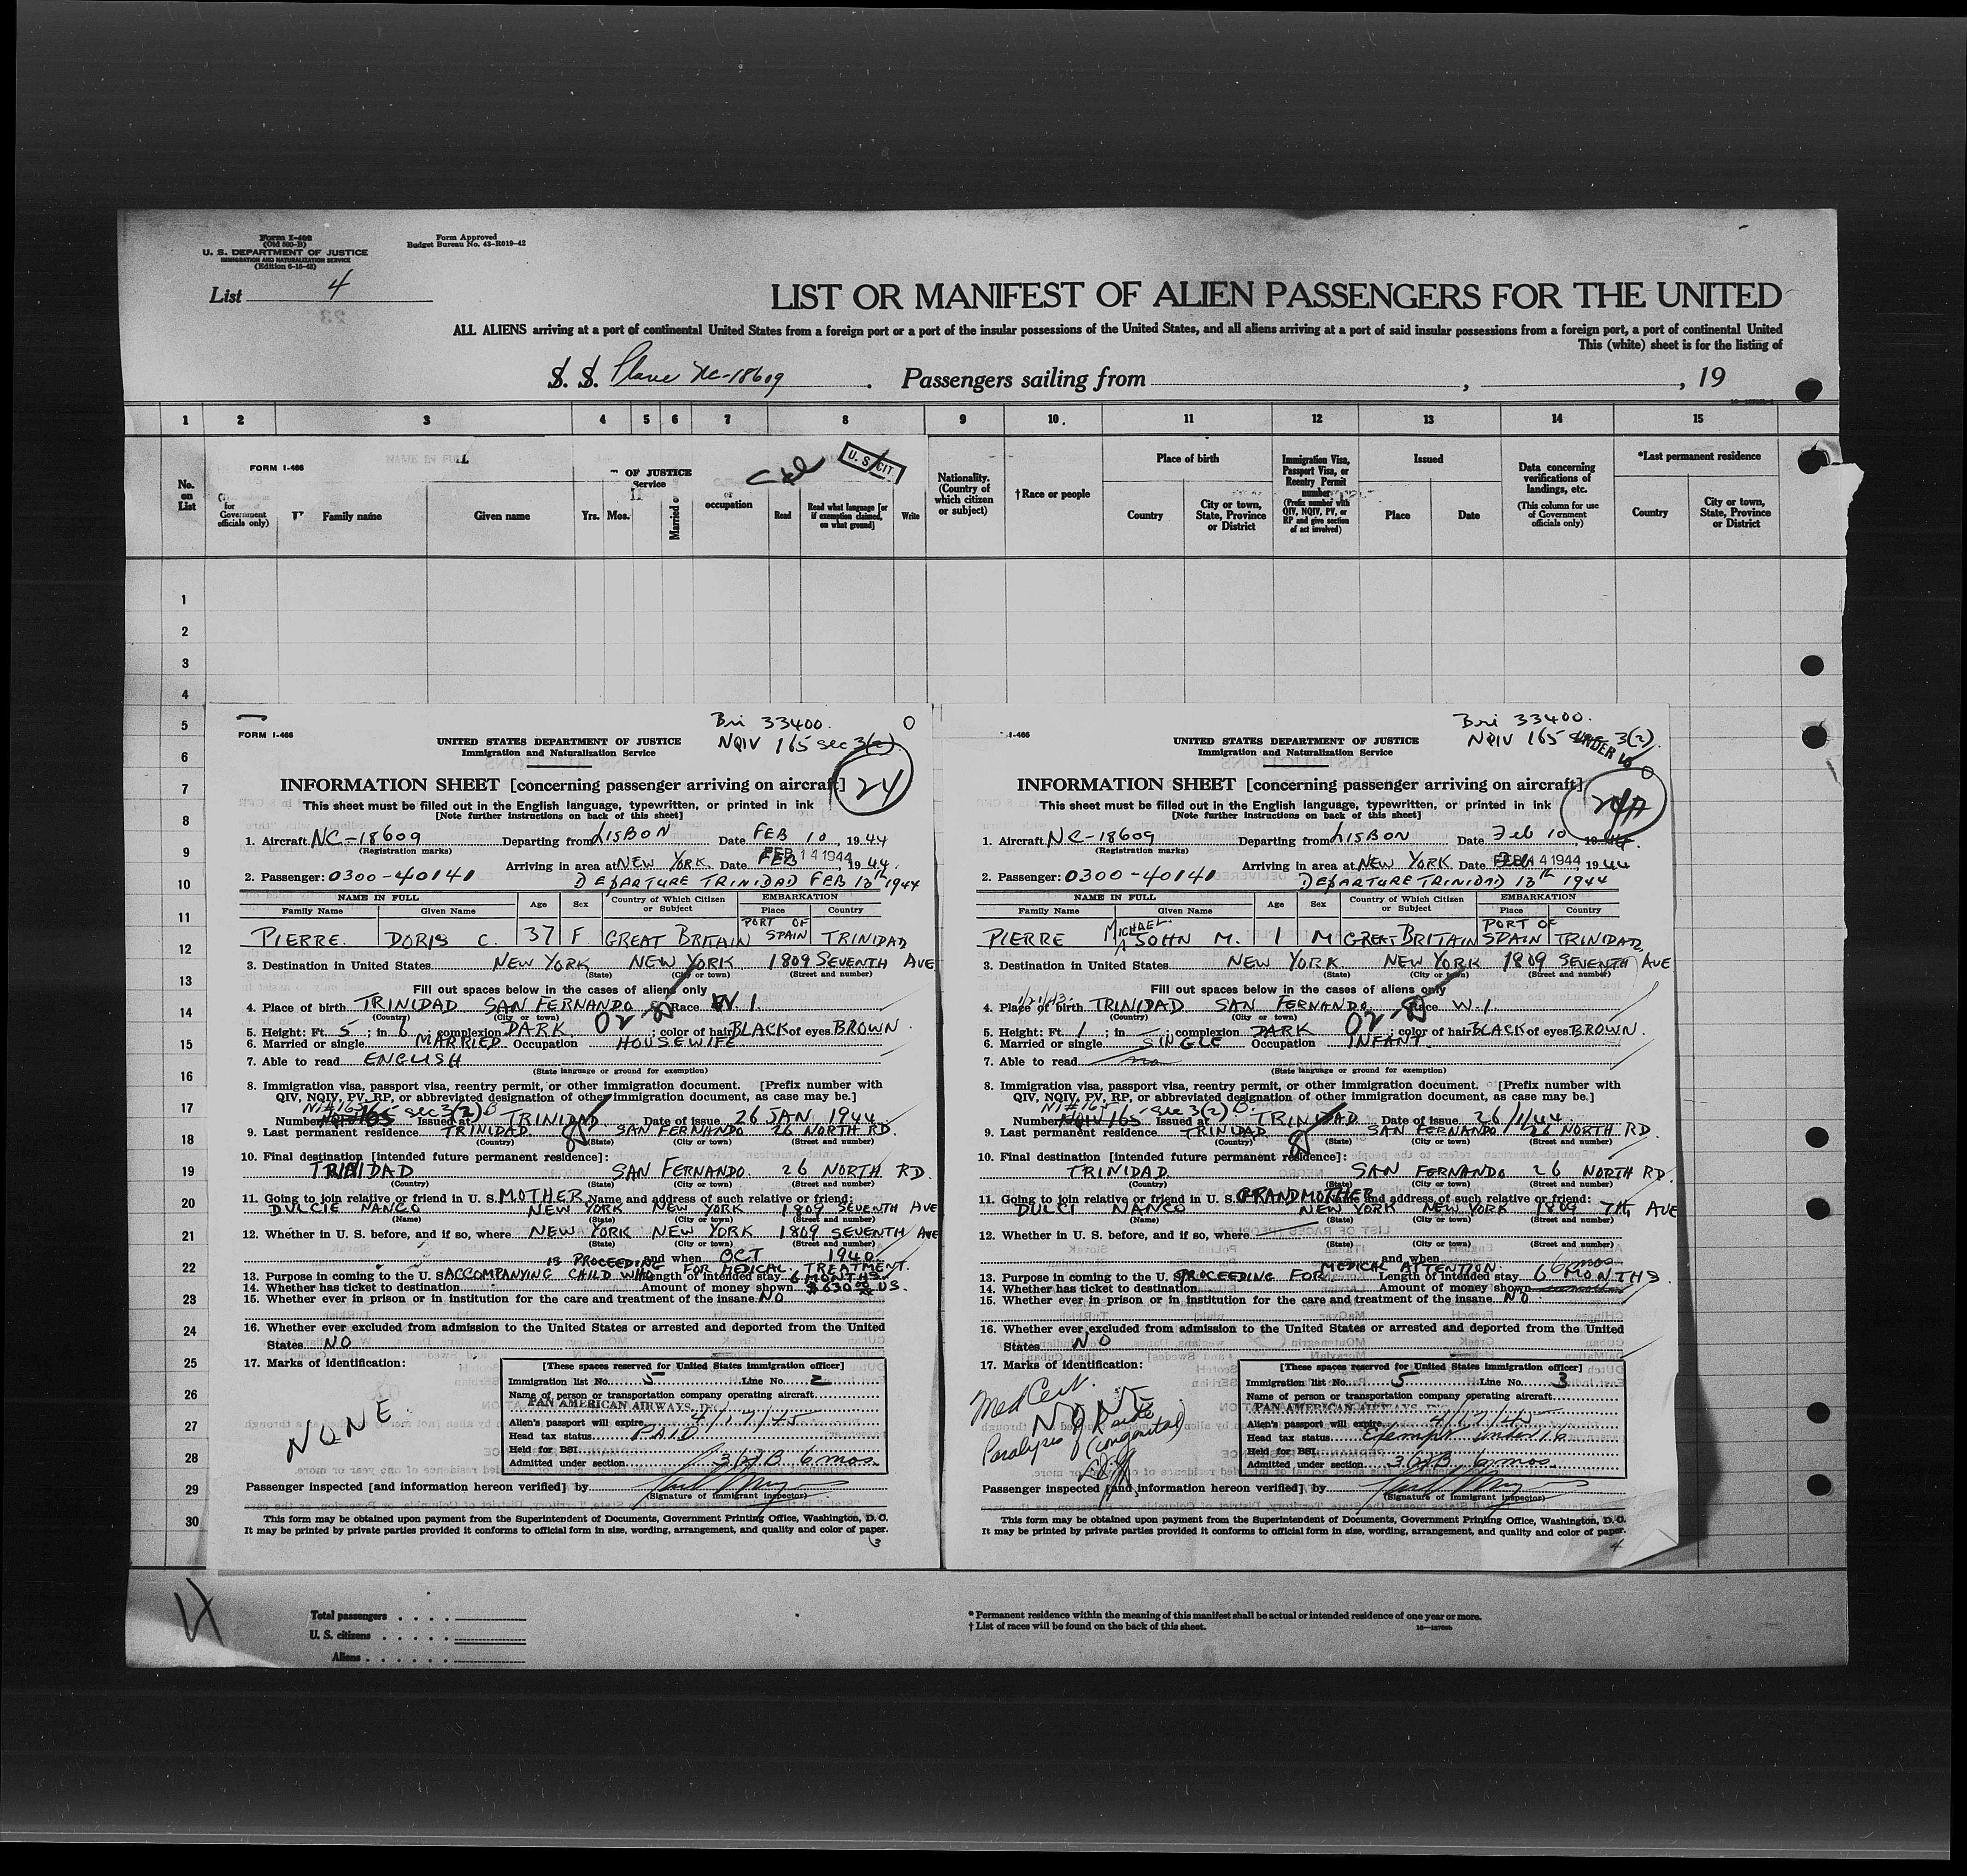 Form I-466
(Old 500-B)
U. S. DEPARTMENT OF JUSTICE
IMMIGRATION AND NATURALIZATION SERVICE
(Edition 6-15-43)
Form Approved
Budget Bureau No. 43-R019-42
List 4
23
LIST OR MANIFEST OF ALIEN PASSENGERS FOR THE UNITED
ALL ALIENS arriving at a port of continental United States from a foreign port or a port of the insular possessions of the United States, and all aliens arriving at a port of said insular possessions from a foreign port, a port of continental United
This (white) sheet is for the listing of
S. S. Plane NC-18609. Passengers sailing from , , 19
1 2 3 4 5 6 7 8 9 10 11 12 13 14 15
No. on List
FORM I-466
for Government officials only)
Family name
Given name
OF JUSTICE
Service
Yrs. Mos.
Married or
or occupation
U. S. CIT.
Read
Read what language [or if exemption claimed, on what ground]
Write
Nationality. (Country of which citizen or subject)
†Race or people
Place of birth
Country
City or town, State, Province or District
Immigration Visa, Passport Visa, or Reentry Permit number
(Prefix number with QIV, NQIV, PV, or RP and give section of act involved)
Issued
Place
Date
Data concerning verifications of landings, etc.
(This column for use of Government officials only)
*Last permanent residence
Country
City or town, State, Province or District
1
2
3
4
5
6
7
8
9
10
11
12
13
14
15
16
17
18
19
20
21
22
23
24
25
26
27
28
29
30
Bri 33400. 0
FORM I-466
NQIV 165 sec 3(2)
UNITED STATES DEPARTMENT OF JUSTICE
Immigration and Naturalization Service
24
INFORMATION SHEET [concerning passenger arriving on aircraft]
This sheet must be filled out in the English language, typewritten, or printed in ink
[Note further instructions on back of this sheet]
1. Aircraft NC-18609 Departing from LISBON Date FEB 10, 1944
(Registration marks)
Arriving in area at NEW YORK Date FEB 14 1944, 1944.
2. Passenger: 0300-40141 DEPARTURE TRINIDAD FEB 13th 1944
NAME IN FULL Age Sex Country of Which Citizen or Subject EMBARKATION
Family Name Given Name Place Country
PIERRE. DORIS C. 37 F GREAT BRITAIN PORT OF SPAIN TRINIDAD
3. Destination in United States NEW YORK NEW YORK 1809 SEVENTH AVE
(State) (City or town) (Street and number)
Fill out spaces below in the cases of aliens only
4. Place of birth TRINIDAD SAN FERNANDO Race W.I.
(Country) (City or town)
5. Height: Ft. 5; in 6; complexion DARK; color of hair BLACK of eyes BROWN.
6. Married or single MARRIED Occupation HOUSEWIFE
7. Able to read ENGLISH
(State language or ground for exemption)
8. Immigration visa, passport visa, reentry permit, or other immigration document. [Prefix number with
QIV, NQIV, PV, RP, or abbreviated designation of other immigration document, as case may be.]
NI#165
Number NQIV 165 sec 3(2)B Issued at TRINIDAD Date of issue 26 JAN 1944
9. Last permanent residence TRINIDAD SAN FERNANDO 26 NORTH RD.
(Country) (State) (City or town) (Street and number)
10. Final destination [intended future permanent residence]:
TRINIDAD SAN FERNANDO. 26 NORTH RD.
(Country) (State) (City or town) (Street and number)
11. Going to join relative or friend in U. S. MOTHER Name and address of such relative or friend:
DULCIE NANCO NEW YORK NEW YORK 1809 SEVENTH AVE
(Name) (State) (City or town) (Street and number)
12. Whether in U. S. before, and if so, where NEW YORK NEW YORK 1809 SEVENTH AVE
(State) (City or town) (Street and number)
and when OCT 1940
13. Purpose in coming to the U. S. ACCOMPANYING CHILD WHO IS PROCEEDING FOR MEDICAL TREATMENT. Length of intended stay 6 MONTHS.
14. Whether has ticket to destination Amount of money shown $630 00/xx US.
15. Whether ever in prison or in institution for the care and treatment of the insane NO
16. Whether ever excluded from admission to the United States or arrested and deported from the United
States NO
17. Marks of identification:
NONE
[These spaces reserved for United States immigration officer]
Immigration list No. 5 Line No. 2
Name of person or transportation company operating aircraft
PAN AMERICAN AIRWAYS, INC
Alien's passport will expire 4/17/45
Head tax status PAID
Held for BSI
Admitted under section 3(2)B 6 mos.
Passenger inspected [and information hereon verified] by
(Signature of immigrant inspector)
This form may be obtained upon payment from the Superintendent of Documents, Government Printing Office, Washington, D. C.
It may be printed by private parties provided it conforms to official form in size, wording, arrangement, and quality and color of paper.
3
Bri 33400.
I-466
NQIV 165 sec 3(2).
UNDER 16
UNITED STATES DEPARTMENT OF JUSTICE
Immigration and Naturalization Service
24A
INFORMATION SHEET [concerning passenger arriving on aircraft]
This sheet must be filled out in the English language, typewritten, or printed in ink
[Note further instructions on back of this sheet]
1. Aircraft NC-18609 Departing from LISBON Date Feb 10, 1944.
(Registration marks)
Arriving in area at NEW YORK Date FEB 14 1944 1944
2. Passenger: 0300-40141 DEPARTURE TRINIDAD 13th 1944
NAME IN FULL Age Sex Country of Which Citizen or Subject EMBARKATION
Family Name Given Name Place Country
PIERRE MICHAEL JOHN M. 1 M GREAT BRITAIN PORT OF SPAIN TRINIDAD
3. Destination in United States NEW YORK. NEW YORK 1809 SEVENTH AVE
(State) (City or town) (Street and number)
Fill out spaces below in the cases of aliens only
4. Place of birth TRINIDAD SAN FERNANDO. Race W.I
(Country) (City or town)
5. Height: Ft. 1; in; complexion DARK; color of hair BLACK of eyes BROWN.
6. Married or single SINGLE Occupation INFANT.
7. Able to read no
(State language or ground for exemption)
8. Immigration visa, passport visa, reentry permit, or other immigration document. [Prefix number with
QIV, NQIV, PV, RP, or abbreviated designation of other immigration document, as case may be.]
NI#165
Number NQIV 165 Sec 3(2)B. Issued at TRINIDAD Date of issue 26/1/44
9. Last permanent residence TRINIDAD SAN FERNANDO 26 NORTH RD.
(Country) (State) (City or town) (Street and number)
10. Final destination [intended future permanent residence]:
TRINIDAD SAN FERNANDO 26 NORTH RD.
(Country) (State) (City or town) (Street and number)
11. Going to join relative or friend in U. S. GRANDMOTHER Name and address of such relative or friend:
DULCI NANCO NEW YORK NEW YORK 1809 7TH AVE
(Name) (State) (City or town) (Street and number)
12. Whether in U. S. before, and if so, where
(State) (City or town) (Street and number)
and when
13. Purpose in coming to the U. S. PROCEEDING FOR MEDICAL ATTENTION. Length of intended stay 6 MONTHS
6 mos
14. Whether has ticket to destination Amount of money shown
15. Whether ever in prison or in institution for the care and treatment of the insane NO
16. Whether ever excluded from admission to the United States or arrested and deported from the United
States NO
17. Marks of identification:
Med Cert.
NONE
Paralysis of R side
(congenital)
[These spaces reserved for United States immigration officer]
Immigration list No. 5 Line No. 3
Name of person or transportation company operating aircraft
PAN AMERICAN AIRWAYS, INC
Alien's passport will expire 4/17/45
Head tax status Exempt under 16
Held for BSI
Admitted under section 3(2)B 6 mos.
Passenger inspected [and information hereon verified] by
(Signature of immigrant inspector)
This form may be obtained upon payment from the Superintendent of Documents, Government Printing Office, Washington, D. C.
It may be printed by private parties provided it conforms to official form in size, wording, arrangement, and quality and color of paper.
4
Total passengers
U. S. citizens
Aliens
* Permanent residence within the meaning of this manifest shall be actual or intended residence of one year or more.
† List of races will be found on the back of this sheet.